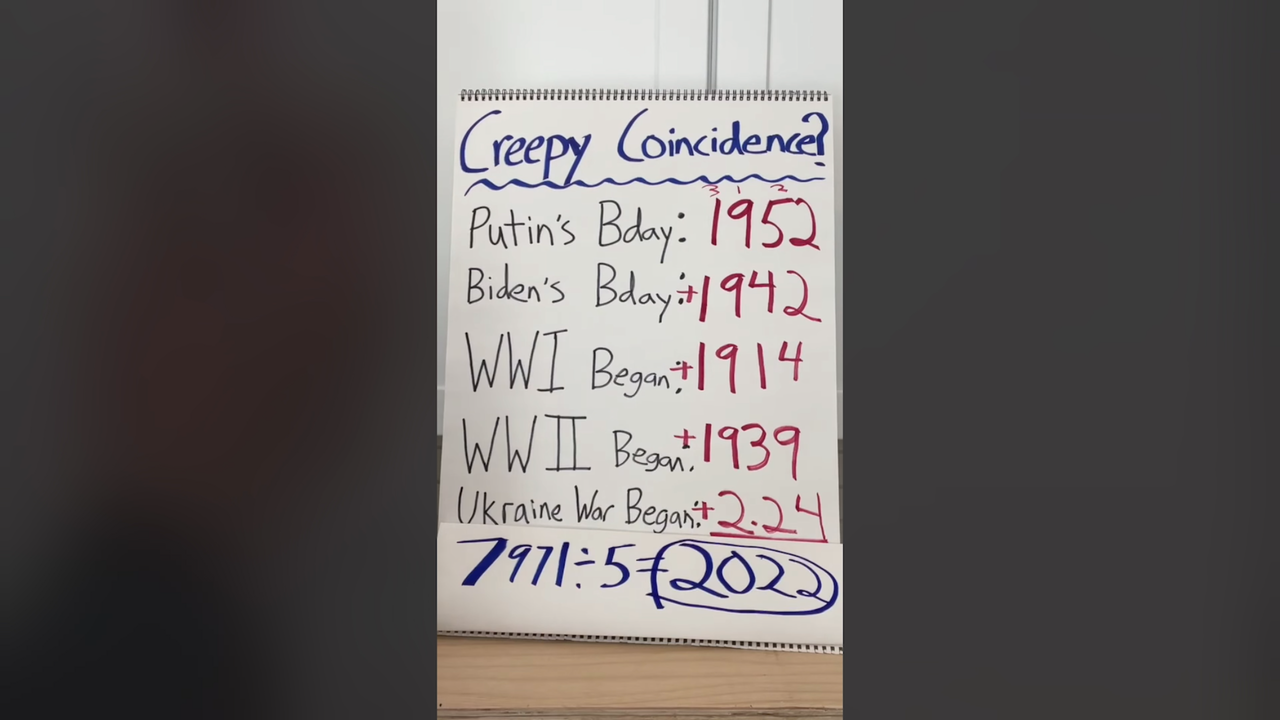 Creepy Coincidence?
3 1 2
Putin's Bday: 1952
Biden's Bday: +1942
WWI Began: +1914
WWII Began: +1939
Ukraine War Began: +2.24
7971÷5=2022